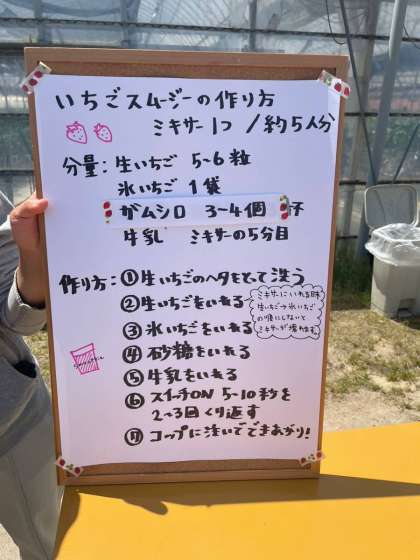 いちごスムージーの作り方
ミキサー1つ / 約5人分
分量: 生いちご 5~6粒
氷いちご 1袋
ガムシロ 3~4個
牛乳 ミキサーの5分目
作り方: ①生いちごのヘタをとって洗う
②生いちごをいれる
ミキサーにいれる時
生いちご→氷いちご
の順にしないと
ミキサーが壊れます。
③氷いちごをいれる
④砂糖をいれる
⑤牛乳をいれる
⑥スイッチON 5~10秒を
2~3回くり返す
⑦コップに注いでできあがり!